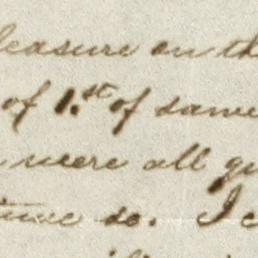 leasure on th
of 1.st of same
were all gu
so. I c